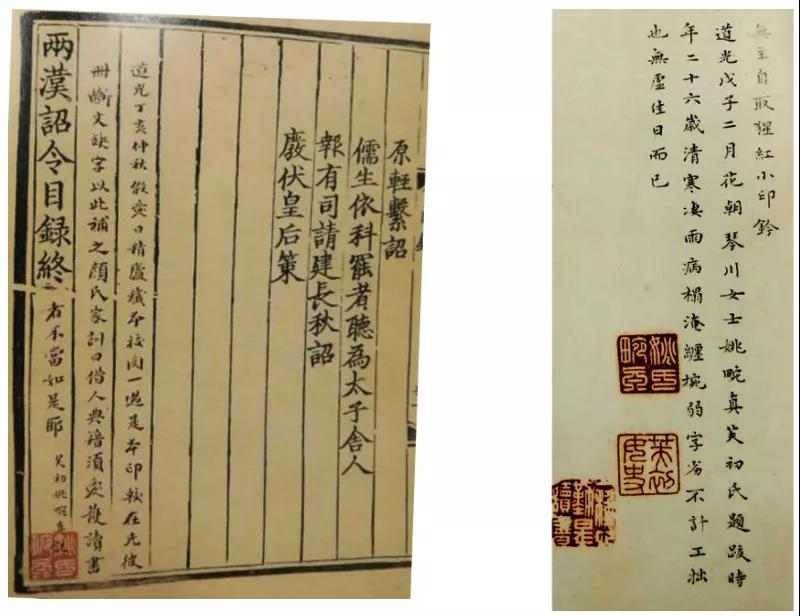 原輕繫詔
儒生依科罷者聽為太子舍人
報有司請建長秋詔
廢伏皇后策
道光丁亥仲秋假愛日精廬藏本校閱一過是本印較在先彼
冊斷文缺字以此補之顏氏家訓曰借人典籍須愛護讀書
兩漢詔令目録終
者不當如是耶 芙初姚畹真
無主自取猩紅小印鈐
道光戊子二月花朝琴川女士姚畹真芙初氏題跋時
年二十六歲清寒淒雨病榻淹纏捥弱字劣不計工拙
也無虛佳日而已
姚氏畹真
芙初女史